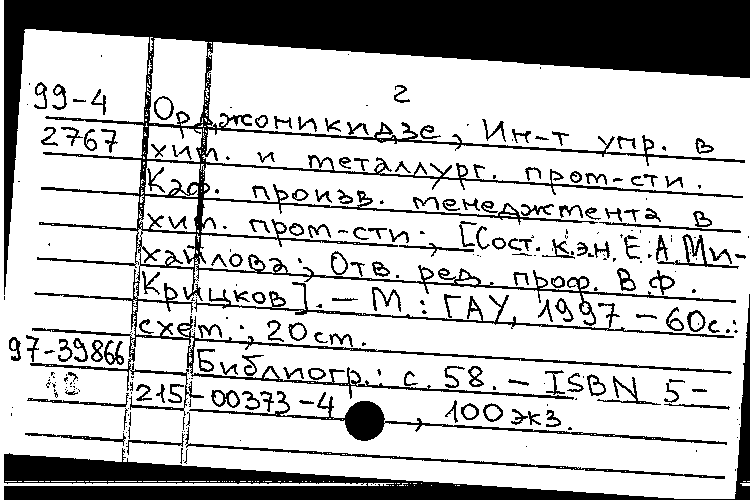 2
99-4
2767
Орджоникидзе, Ин-т упр. в
хим. и металлург. пром-сти.
Каф. произв. менеджмента в
хим. пром-сти.; [Сост. к.э.н. Е.А. Ми-
хайлова; Отв. ред. проф. В.Ф.
Крицков]. – М.: ГАУ, 1997 – 60с.:
схем.; 20см.
97-39866
18
Библиогр.: с. 58. – ISBN 5-
215-00373-4 , 100 экз.